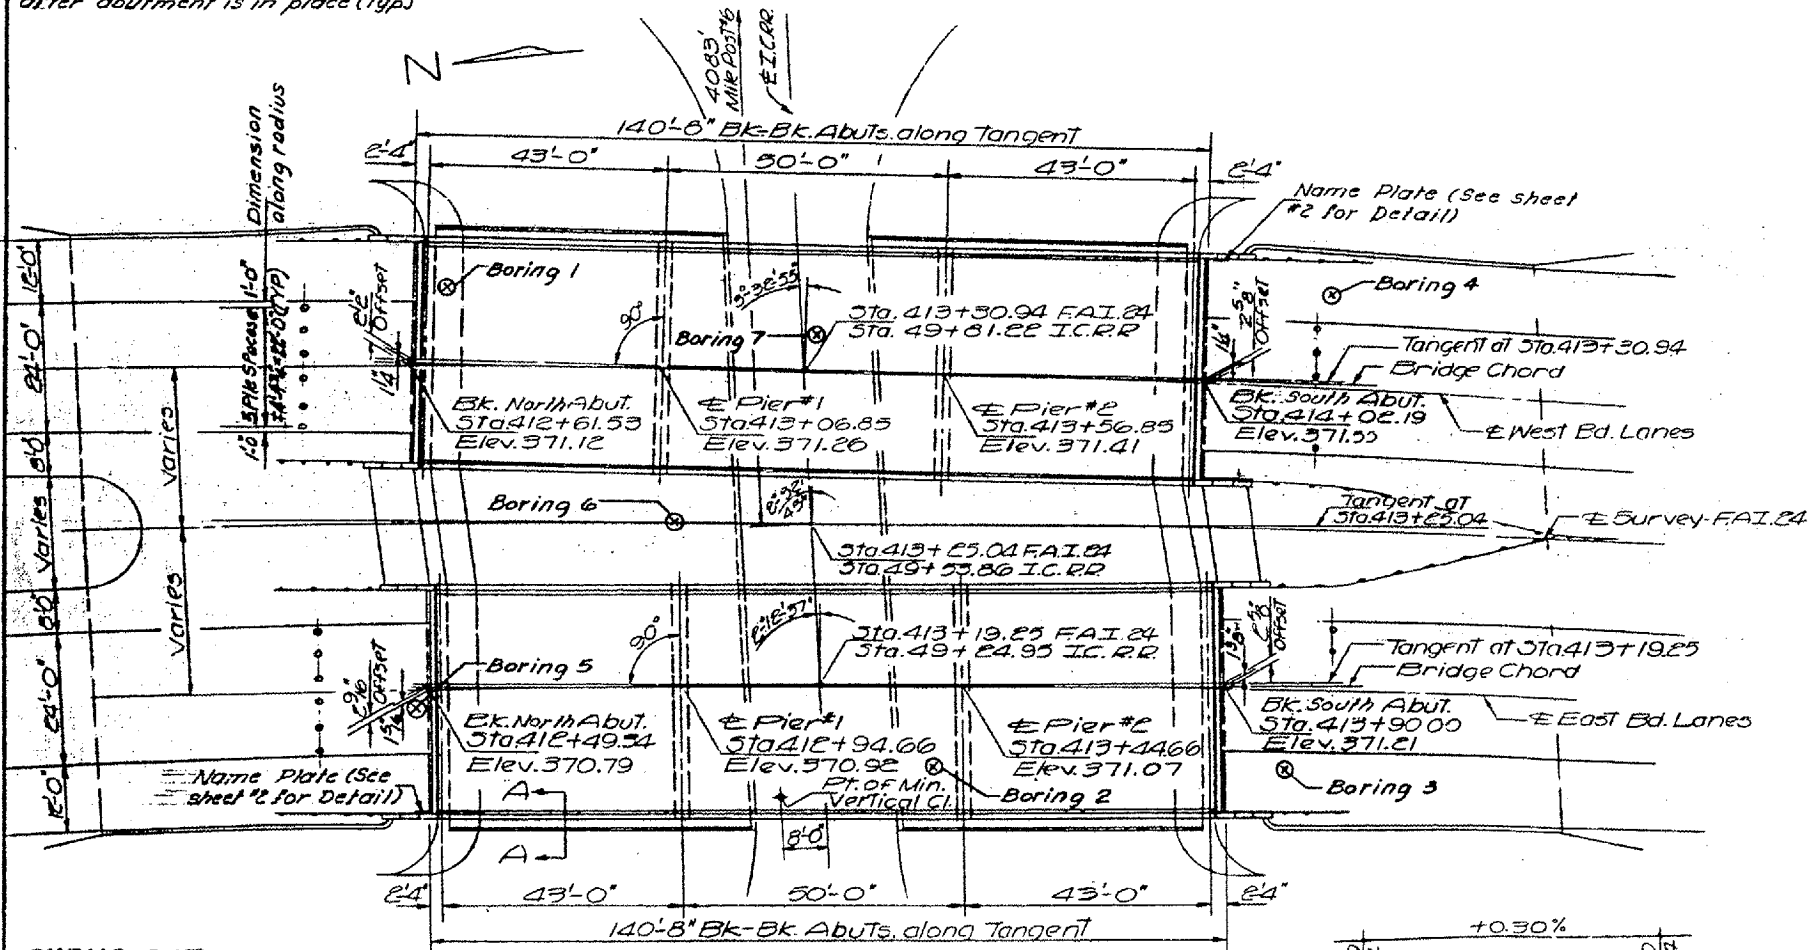 after abutment is in place (Typ.)
Z
4083'
Mile Post #6
℄ I.C.R.R.
140'-8" Bk-Bk. Abuts. along Tangent
2'-4"
43'-0"
50'-0"
43'-0"
2'-4"
Dimension
along radius
Name Plate (See sheet
#2 for Detail)
12'-0"
24'-0"
8'-0"
Varies
8'-0"
24'-0"
12'-0"
1'-0"
1'-0"
Varies
Varies
Offset
Boring 1
90°
3°-32'-55"
Boring 7
Sta. 413+30.94 F.A.I. 24
Sta. 49+81.22 I.C.R.R.
Boring 4
2 5/8"
Offset
Tangent at Sta. 413+30.94
Bridge Chord
Bk. North Abut.
Sta. 412+61.53
Elev. 371.12
℄ Pier #1
Sta. 413+06.85
Elev. 371.26
℄ Pier #2
Sta. 413+56.85
Elev. 371.41
Bk. South Abut.
Sta. 414+02.19
Elev. 371.55
℄ West Bd. Lanes
Boring 6
Tangent at
Sta. 413+25.04
℄ Survey-F.A.I. 24
Sta. 413+25.04 F.A.I. 24
Sta. 49+53.86 I.C.R.R.
90°
2°-12'-37"
Sta. 413+19.25 F.A.I. 24
Sta. 49+24.95 I.C.R.R.
2 5/8"
Offset
Tangent at Sta. 413+19.25
Bridge Chord
Boring 5
2 9/16"
Offset
Bk. North Abut.
Sta. 412+49.34
Elev. 370.79
℄ Pier #1
Sta. 412+94.66
Elev. 370.92
℄ Pier #2
Sta. 413+44.66
Elev. 371.07
Bk. South Abut.
Sta. 413+90.00
Elev. 371.21
℄ East Bd. Lanes
Name Plate (See
sheet #2 for Detail)
A
Pt. of Min.
Vertical Cl.
Boring 2
Boring 3
8'-0"
A
2'-4"
43'-0"
50'-0"
43'-0"
2'-4"
140'-8" Bk-Bk. Abuts. along Tangent
+0.30%